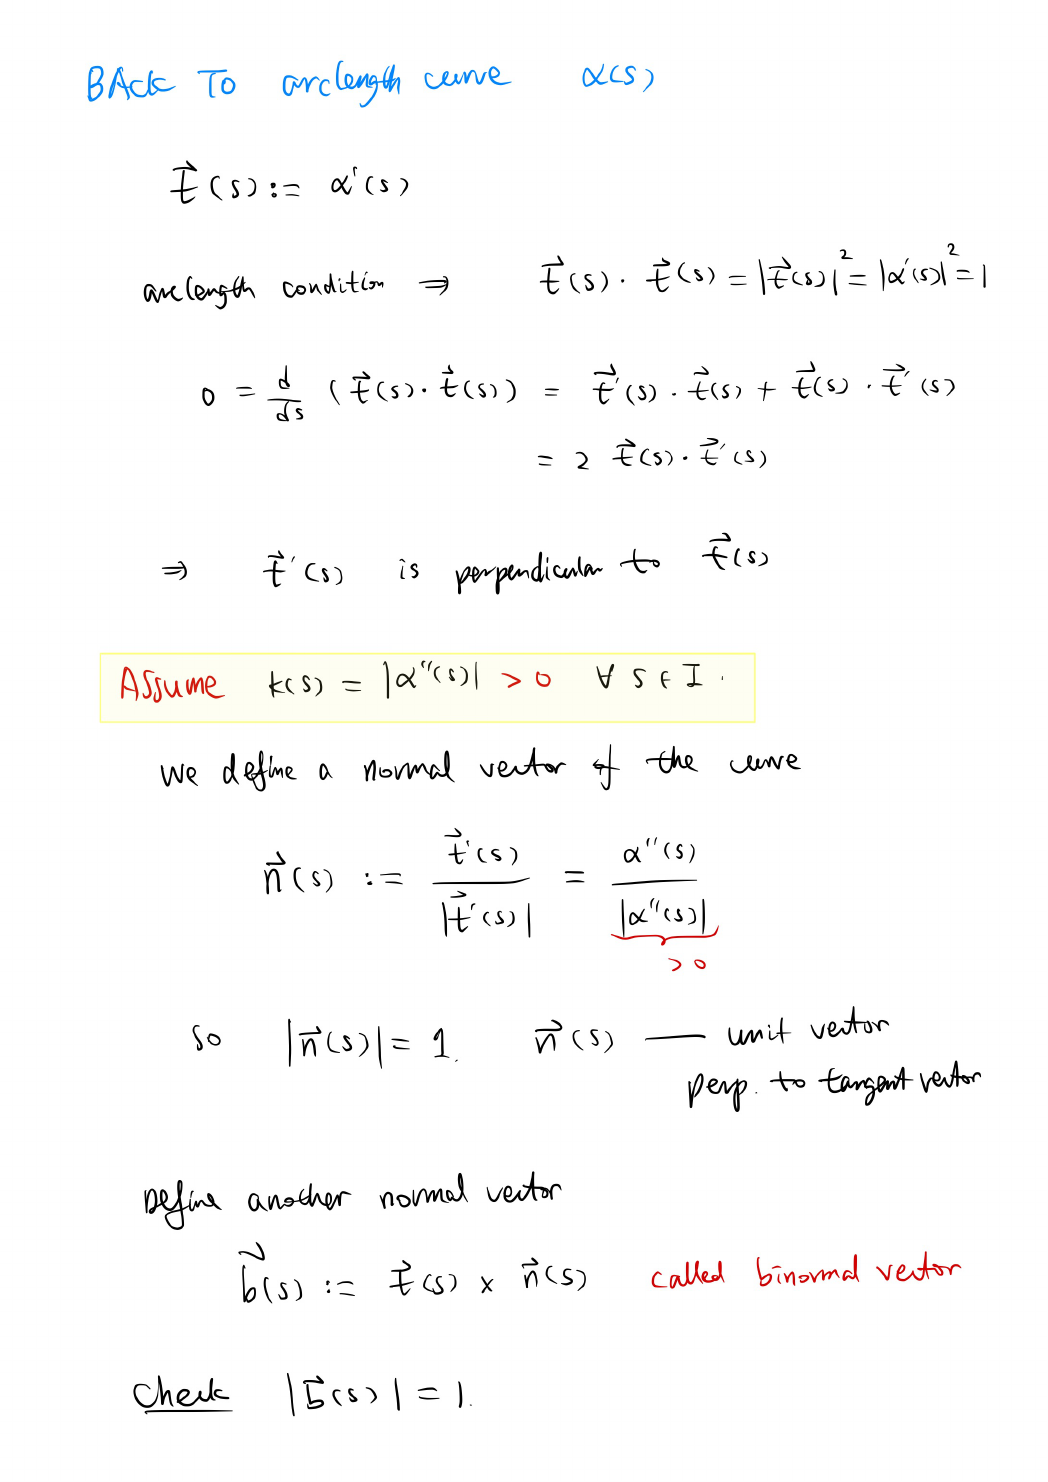 BACK TO arclength curve α(s)
t⃗(s) := α'(s)
arclength condition ⇒ t⃗(s) · t⃗(s) = |t⃗(s)|² = |α'(s)|² = 1
0 = d/ds (t⃗(s) · t⃗(s)) = t⃗'(s) · t⃗(s) + t⃗(s) · t⃗'(s)
= 2 t⃗(s) · t⃗'(s)
⇒ t⃗'(s) is perpendicular to t⃗(s)
Assume k(s) = |α''(s)| > 0 ∀ s ∈ I.
We define a normal vector of the curve
n⃗(s) := t⃗'(s) / |t⃗'(s)| = α''(s) / |α''(s)|
> 0
So |n⃗(s)| = 1. n⃗(s) — unit vector
perp. to tangent vector
Define another normal vector
b⃗(s) := t⃗(s) × n⃗(s) called binormal vector
Check |b⃗(s)| = 1.